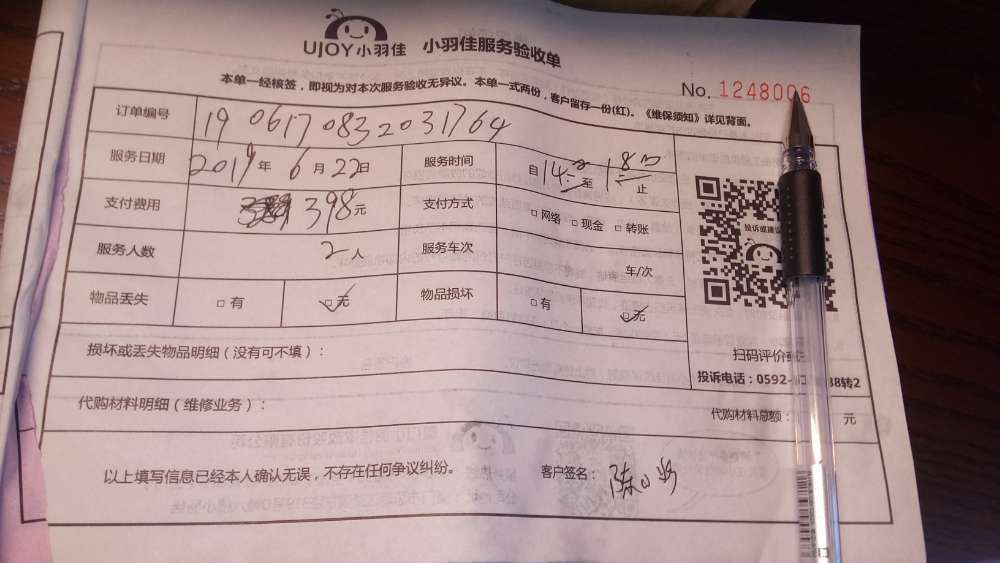 UJOY小羽佳 小羽佳服务验收单
No. 1248006
本单一经核签，即视为对本次服务验收无异议。本单一式两份，客户留存一份(红)。《维保须知》详见背面。
订单编号 19 0617 0832031764
服务日期 2019年 6月22日 服务时间 自14: 至18: 止
支付费用 398元 支付方式 □网络 □现金 □转账
投诉或建议
服务人数 2人 服务车次 车/次
物品丢失 □有 □无 物品损坏 □有 □无
损坏或丢失物品明细（没有可不填）：
扫码评价
投诉电话：0592- 38转2
代购材料明细（维修业务）： 代购材料总额： 元
以上填写信息已经本人确认无误，不存在任何争议纠纷。 客户签名： 陈